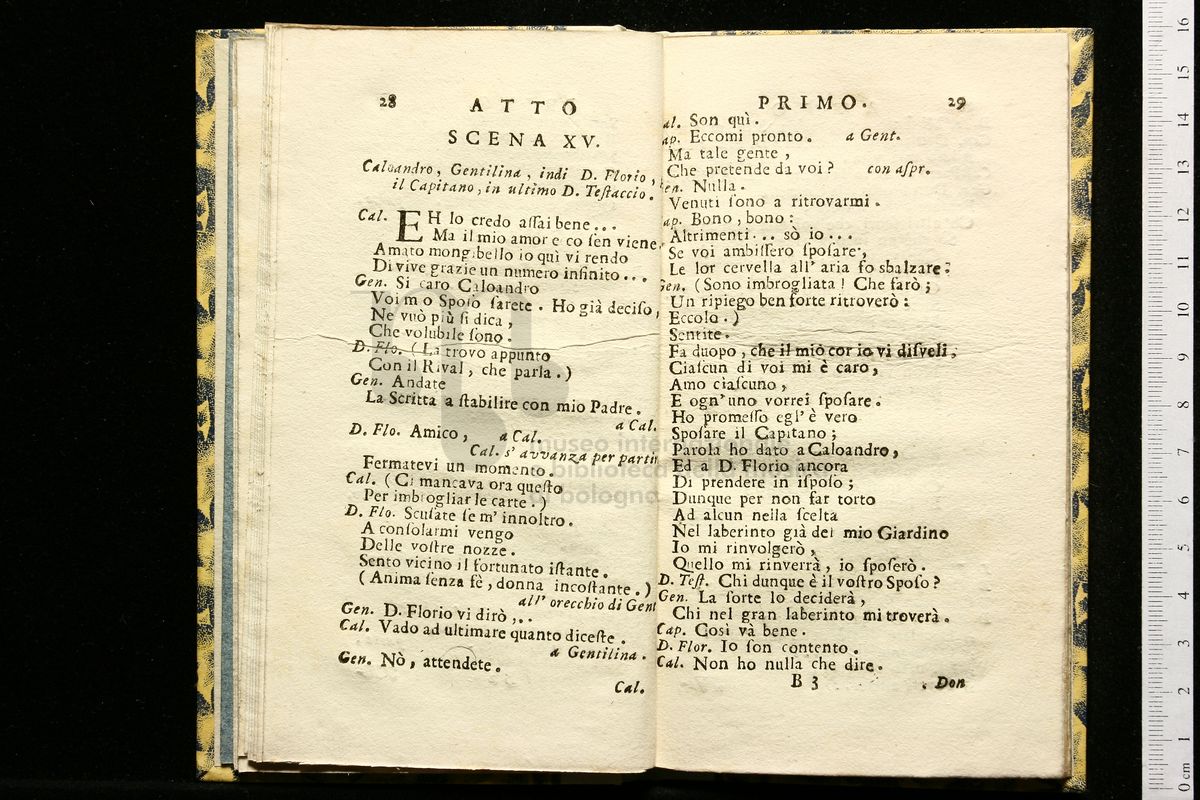 28 ATTO
SCENA XV.
Caloandro, Gentilina, indi D. Florio,
il Capitano, in ultimo D. Teſtaccio.
Cal. EH lo credo aſſai bene...
Ma il mio amor e co ſen viene,
Amato mongibello io quì vi rendo
Di vive grazie un numero infinito...
Gen. Si caro Caloandro
Voi m o Spoſo ſarete. Ho già deciſo,
Ne vuò più ſi dica,
Che volubile ſono.
D. Flo. (La trovo appunto
Con il Rival, che parla.)
Gen. Andate
La Scritta a ſtabilire con mio Padre.
a Cal.
D. Flo. Amico, a Cal.
Cal. s' avvanza per partir
Fermatevi un momento.
Cal. (Ci mancava ora queſto
Per imbrogliar le carte!)
D. Flo. Scuſate ſe m' innoltro.
A conſolarmi vengo
Delle voſtre nozze.
Sento vicino il fortunato iſtante.
(Anima ſenza fè, donna incoſtante.)
all' orecchio di Gent
Gen. D. Florio vi dirò,..
Cal. Vado ad ultimare quanto diceſte.
a Gentilina.
Gen. Nò, attendete.
Cal.
PRIMO. 29
al. Son quì.
ap. Eccomi pronto. a Gent.
Ma tale gente,
Che pretende da voi? con aſpr.
en. Nulla.
Venuti ſono a ritrovarmi.
ap. Bono, bono:
Altrimenti... sò io...
Se voi ambiſſero ſpoſare,
Le lor cervella all' aria fo sbalzare:
Gen. (Sono imbrogliata! Che farò;
Un ripiego ben forte ritroverò:
Eccolo.)
Sentite.
Fa duopo, che il miò cor io vi diſveli,
Ciaſcun di voi mi è caro,
Amo ciaſcuno,
E ogn' uno vorrei ſpoſare.
Ho promeſſo egl' è vero
Spoſare il Capitano;
Parola ho dato a Caloandro,
Ed a D. Florio ancora
Di prendere in iſpoſo;
Dunque per non far torto
Ad alcun nella ſcelta
Nel laberinto già del mio Giardino
Io mi rinvolgerò,
Quello mi rinverrà, io ſpoſerò.
D. Teſt. Chi dunque è il voſtro Spoſo?
Gen. La ſorte lo deciderà,
Chi nel gran laberinto mi troverà.
Cap. Così và bene.
D. Flor. Io ſon contento.
Cal. Non ho nulla che dire.
B 3 Don
museo internazionale
biblioteca della musica
di bologna
0 cm 1 2 3 4 5 6 7 8 9 10 11 12 13 14 15 16